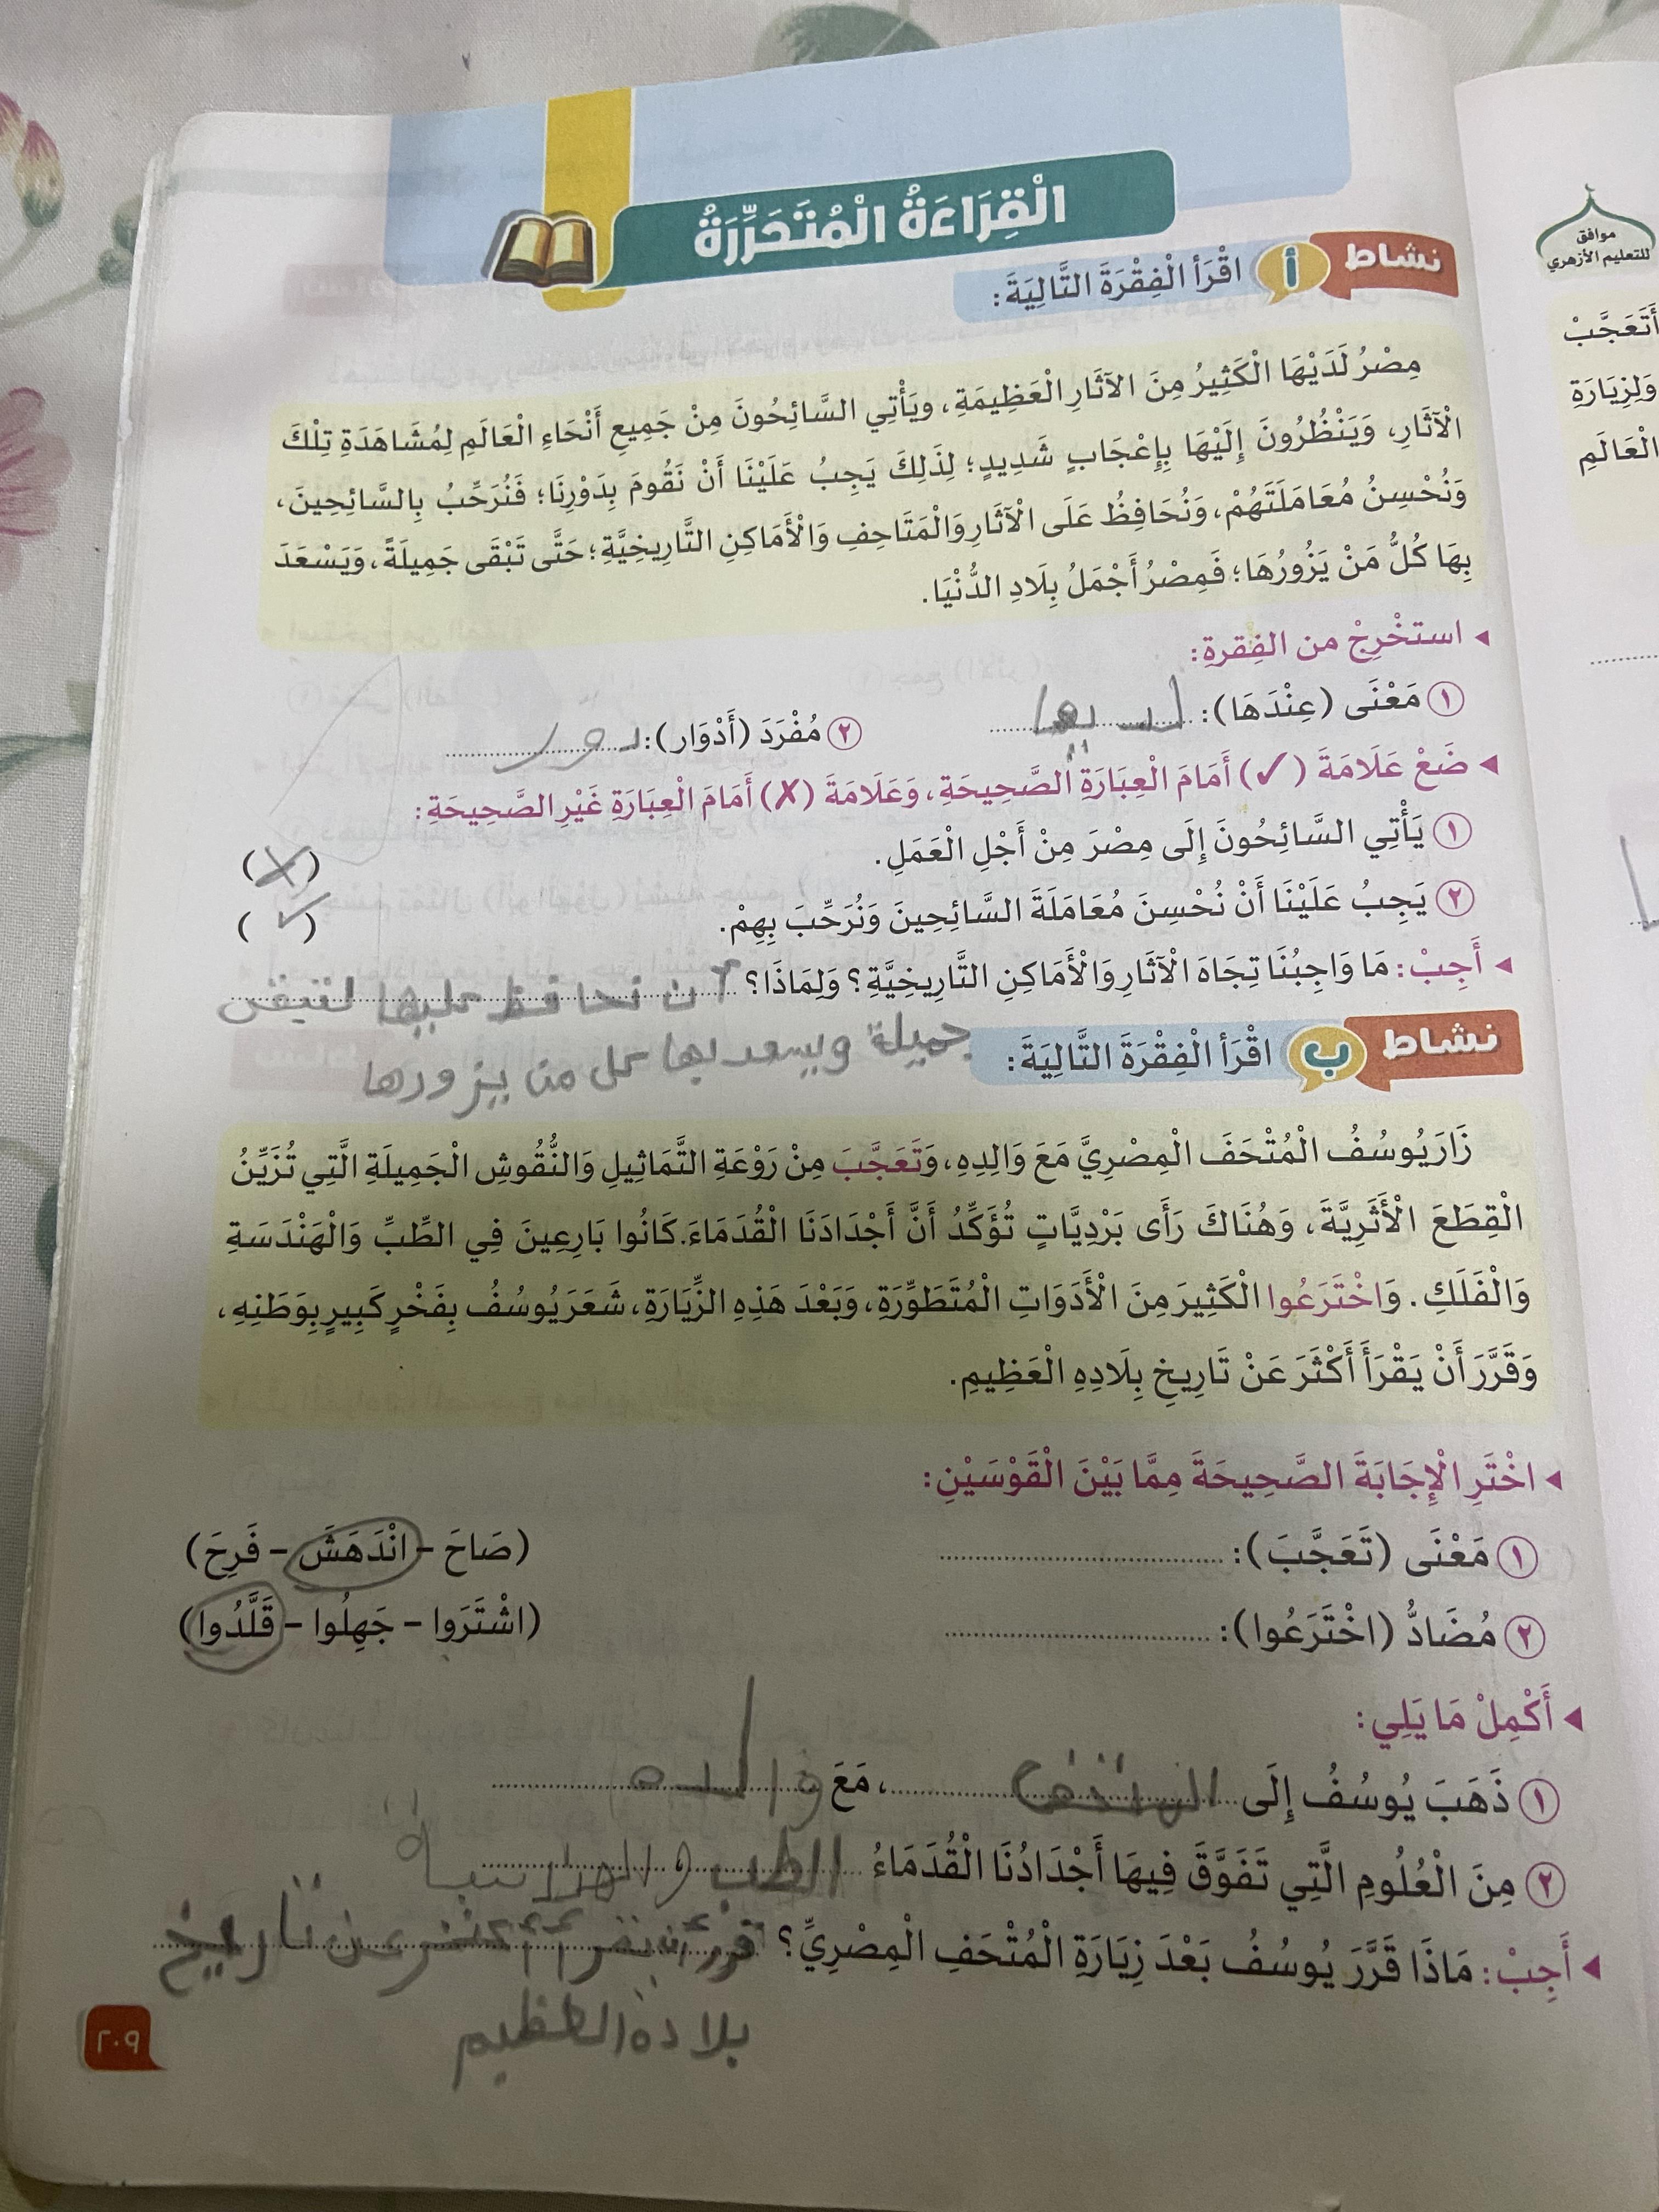 الْقِرَاءَةُ الْمُتَحَرِّرَةُ
موافق
للتعليم الأزهري
نشاط أ اقْرَأِ الْفِقْرَةَ التَّالِيَةَ:
أَتَعَجَّبْ
وَلِزِيَارَةِ
الْعَالَمِ
مِصْرُ لَدَيْهَا الْكَثِيرُ مِنَ الآثَارِ الْعَظِيمَةِ، ويَأْتِي السَّائِحُونَ مِنْ جَمِيعِ أَنْحَاءِ الْعَالَمِ لِمُشَاهَدَةِ تِلْكَ
الْآثَارِ، وَيَنْظُرُونَ إِلَيْهَا بِإِعْجَابٍ شَدِيدٍ؛ لِذَلِكَ يَجِبُ عَلَيْنَا أَنْ نَقُومَ بِدَوْرِنَا؛ فَنُرَحِّبُ بِالسَّائِحِينَ،
وَنُحْسِنُ مُعَامَلَتَهُمْ، وَنُحَافِظُ عَلَى الْآثَارِ وَالْمَتَاحِفِ وَالْأَمَاكِنِ التَّارِيخِيَّةِ؛ حَتَّى تَبْقَى جَمِيلَةً، وَيَسْعَدَ
بِهَا كُلُّ مَنْ يَزُورُهَا؛ فَمِصْرُ أَجْمَلُ بِلَادِ الدُّنْيَا.
استَخْرِجْ من الفِقرةِ:
١ مَعْنَى (عِنْدَهَا): لديها ٢ مُفْرَدَ (أَدْوَار): دور
ضَعْ عَلَامَةَ (✓) أَمَامَ الْعِبَارَةِ الصَّحِيحَةِ، وَعَلَامَةَ (✗) أَمَامَ الْعِبَارَةِ غَيْرِ الصَّحِيحَةِ:
١ يَأْتِي السَّائِحُونَ إِلَى مِصْرَ مِنْ أَجْلِ الْعَمَلِ. (✗)
٢ يَجِبُ عَلَيْنَا أَنْ نُحْسِنَ مُعَامَلَةَ السَّائِحِينَ وَنُرَحِّبَ بِهِمْ. (✓)
أَجِبْ: مَا وَاجِبُنَا تِجَاهَ الْآثَارِ وَالْأَمَاكِنِ التَّارِيخِيَّةِ؟ وَلِمَاذَا؟ أن نحافظ عليها لتبقى
جميلة ويسعد بها كل من يزورها
نشاط ب اقْرَأِ الْفِقْرَةَ التَّالِيَةَ:
زَارَ يُوسُفُ الْمُتْحَفَ الْمِصْرِيَّ مَعَ وَالِدِهِ، وَتَعَجَّبَ مِنْ رَوْعَةِ التَّمَاثِيلِ وَالنُّقُوشِ الْجَمِيلَةِ الَّتِي تُزَيِّنُ
الْقِطَعَ الْأَثَرِيَّةَ، وَهُنَاكَ رَأَى بَرْدِيَّاتٍ تُؤَكِّدُ أَنَّ أَجْدَادَنَا الْقُدَمَاءَ.كَانُوا بَارِعِينَ فِي الطِّبِّ وَالْهَنْدَسَةِ
وَالْفَلَكِ. وَاخْتَرَعُوا الْكَثِيرَ مِنَ الْأَدَوَاتِ الْمُتَطَوِّرَةِ، وَبَعْدَ هَذِهِ الزِّيَارَةِ، شَعَرَ يُوسُفُ بِفَخْرٍ كَبِيرٍ بِوَطَنِهِ،
وَقَرَّرَ أَنْ يَقْرَأَ أَكْثَرَ عَنْ تَارِيخِ بِلَادِهِ الْعَظِيمِ.
اخْتَرِ الْإِجَابَةَ الصَّحِيحَةَ مِمَّا بَيْنَ الْقَوْسَيْنِ:
١ مَعْنَى (تَعَجَّبَ): (صَاحَ – انْدَهَشَ – فَرِحَ)
٢ مُضَادُّ (اخْتَرَعُوا): (اشْتَرَوا – جَهِلُوا – قَلَّدُوا)
أَكْمِلْ مَا يَلِي:
١ ذَهَبَ يُوسُفُ إِلَى ، مَعَ والده
٢ مِنَ الْعُلُومِ الَّتِي تَفَوَّقَ فِيهَا أَجْدَادُنَا الْقُدَمَاءُ الطب و
أَجِبْ: مَاذَا قَرَّرَ يُوسُفُ بَعْدَ زِيَارَةِ الْمُتْحَفِ الْمِصْرِيِّ؟ قرر أن يقرأ أكثر عن تاريخ
بلاده العظيم
٢٠٩